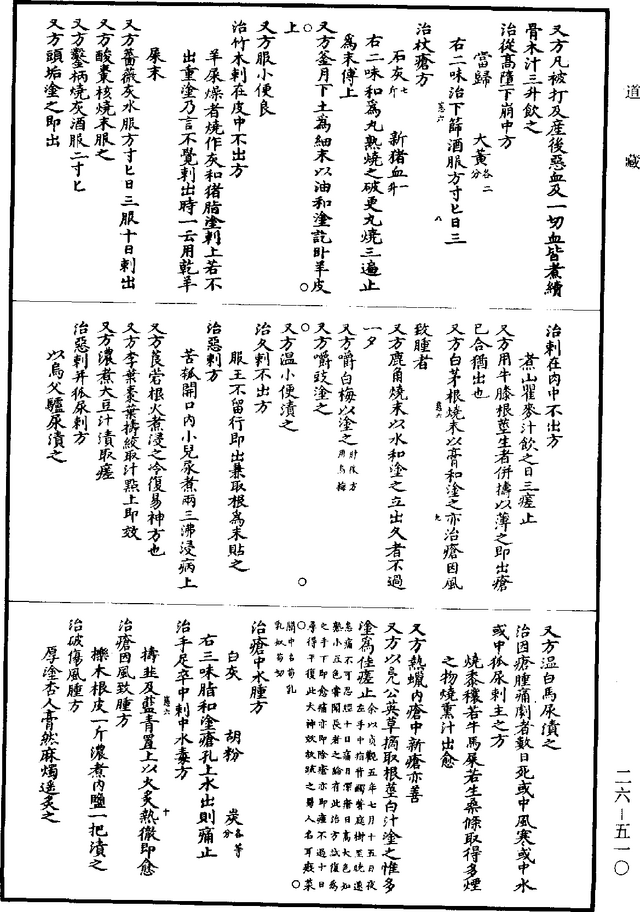 道藏
又方凡被打及産後惡血及一切血皆煮續
骨木汁三升飲之
治從高墮下崩中方
當歸 大黃各二分
右二味治下篩酒服方寸匕日三
卷六 八
治杖瘡方
石灰七斤 新猪血一升
右二味和爲丸熟燒之破更丸燒三遍止
爲末傅上
又方釜月下土爲細末以油和塗訖卧羊皮
上
又方服小便良
治竹木刺在皮中不出方
羊屎燥者燒作灰和猪脂塗刺上若不
出重塗乃言不覺刺出時一云用乾羊
屎末
又方薔薇灰水服方寸匕日三服十日刺出
又方酸棗核燒末服之
又方鑿柄燒灰酒服二寸匕
又方頭垢塗之即出
治刺在肉中不出方
煮山瞿麥汁飲之日三瘥止
又方用牛膝根莖生者併擣以薄之即出瘡
已合猶出也
又方白茅根燒末以膏和塗之亦治瘡因風
卷六 九
致腫者
又方鹿角燒末以水和塗之立出久者不過
一夕
又方嚼白梅以塗之肘後方用烏梅
又方嚼豉塗之
又方温小便漬之
治久刺不出方
服王不留行即出兼取根爲末貼之
治惡刺方
苦瓠開口内小兒尿煮兩三沸浸病上
又方莨菪根水煮浸之冷復易神方也
又方李葉棗葉擣絞取汁點上即效
又方濃煮大豆汁漬取瘥
治惡刺并狐尿刺方
以烏父驢尿漬之
又方温白馬尿漬之
治因瘡腫痛劇者數日死或中風寒或中水
或中狐尿刺主之方
燒黍穰若牛馬屎若生桑條取得多煙
之物燒熏汁出愈
又方熱蠟内瘡中新瘡亦善
又方以凫公英草摘取根莖白汁塗之惟多
塗爲佳瘥止余以貞觀五年七月十五日夜
以左手中指背觸著庭樹至曉遂
患痛不可忍經十日痛日深瘡日高大色如
熟小豆色常聞長者之論有此治方試復爲
之手下即愈痛亦即除瘡亦即瘥不過十日
尋得平復此大神效故疏之蜀人名耳瘢菜
關中名苟乳
治瘡中水腫方
白灰 胡粉 炭各等分
右三味脂和塗瘡孔上水出則痛止
治手足卒中刺中水毒方
擣韭及藍青置上以火炙熱徹即愈
卷六 十
治瘡因風致腫方
櫟木根皮一斤濃煮内鹽一把漬之
治破傷風腫方
厚塗杏人膏然麻燭遥炙之
二六—五一〇